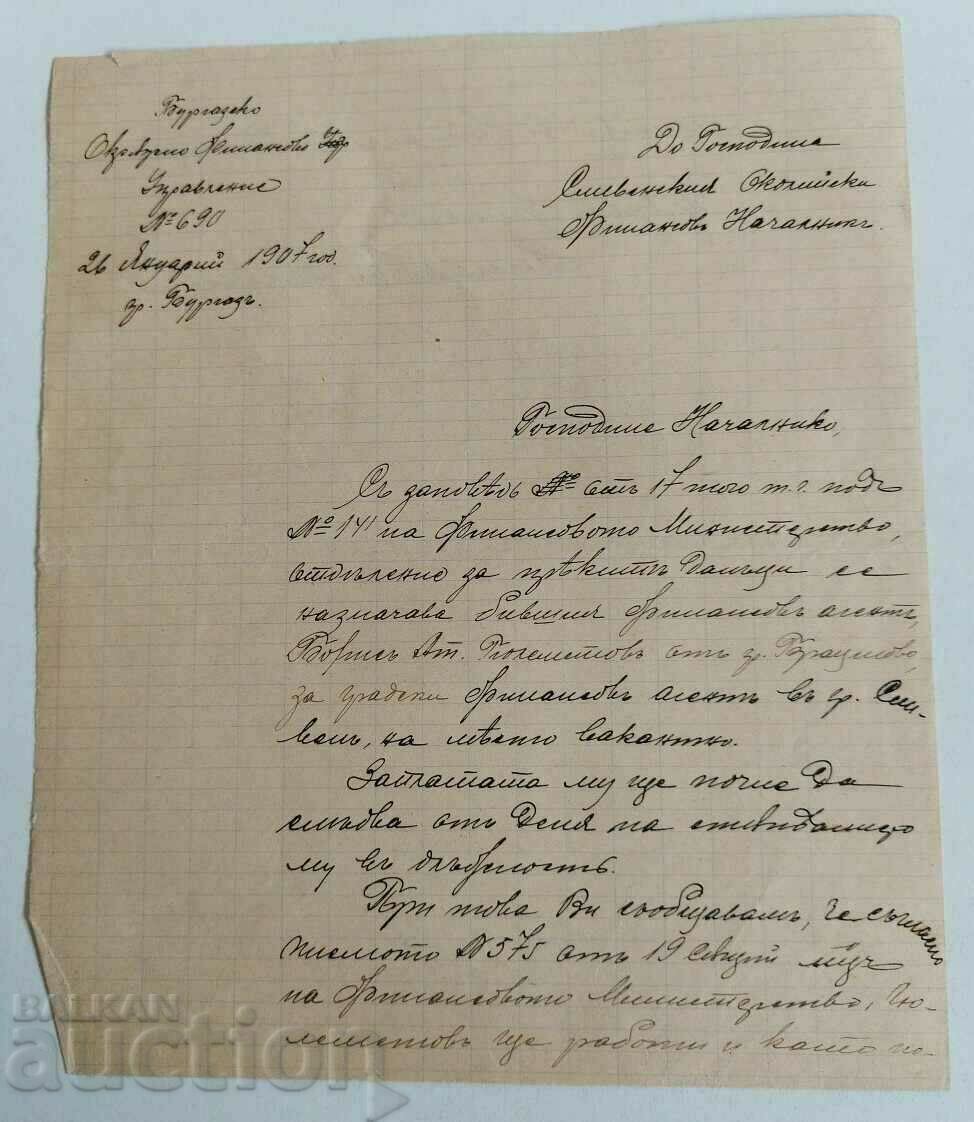 Бургазско
Окръжно Финансово
Управление
№ 690
26 Януарий 1907 год.
гр. Бургазъ.
До Господина
Сливенския Околийски
Финансовъ Началникъ.
Господине Началнико,
Съ заповѣдь отъ 17 того т. г. подъ
№ 141 на Финансовото Министерство,
отдѣление за прѣкитѣ данъци се
назначава бившия Финансовъ агентъ,
Борисъ Ат. Гюлеметовъ отъ гр.
за градски Финансовъ агентъ въ гр. Сли-
венъ, на мѣсто вакантно.
Заплатата му ще почне да
слѣдва отъ деня на
му въ длъжность.
При това Ви съобщавамъ, че съгласно
писмото № 575 отъ 19 текущий м-цъ
на Финансовото Министерство, Гю-
леметовъ ще работи и като по-
BALKAN
auction